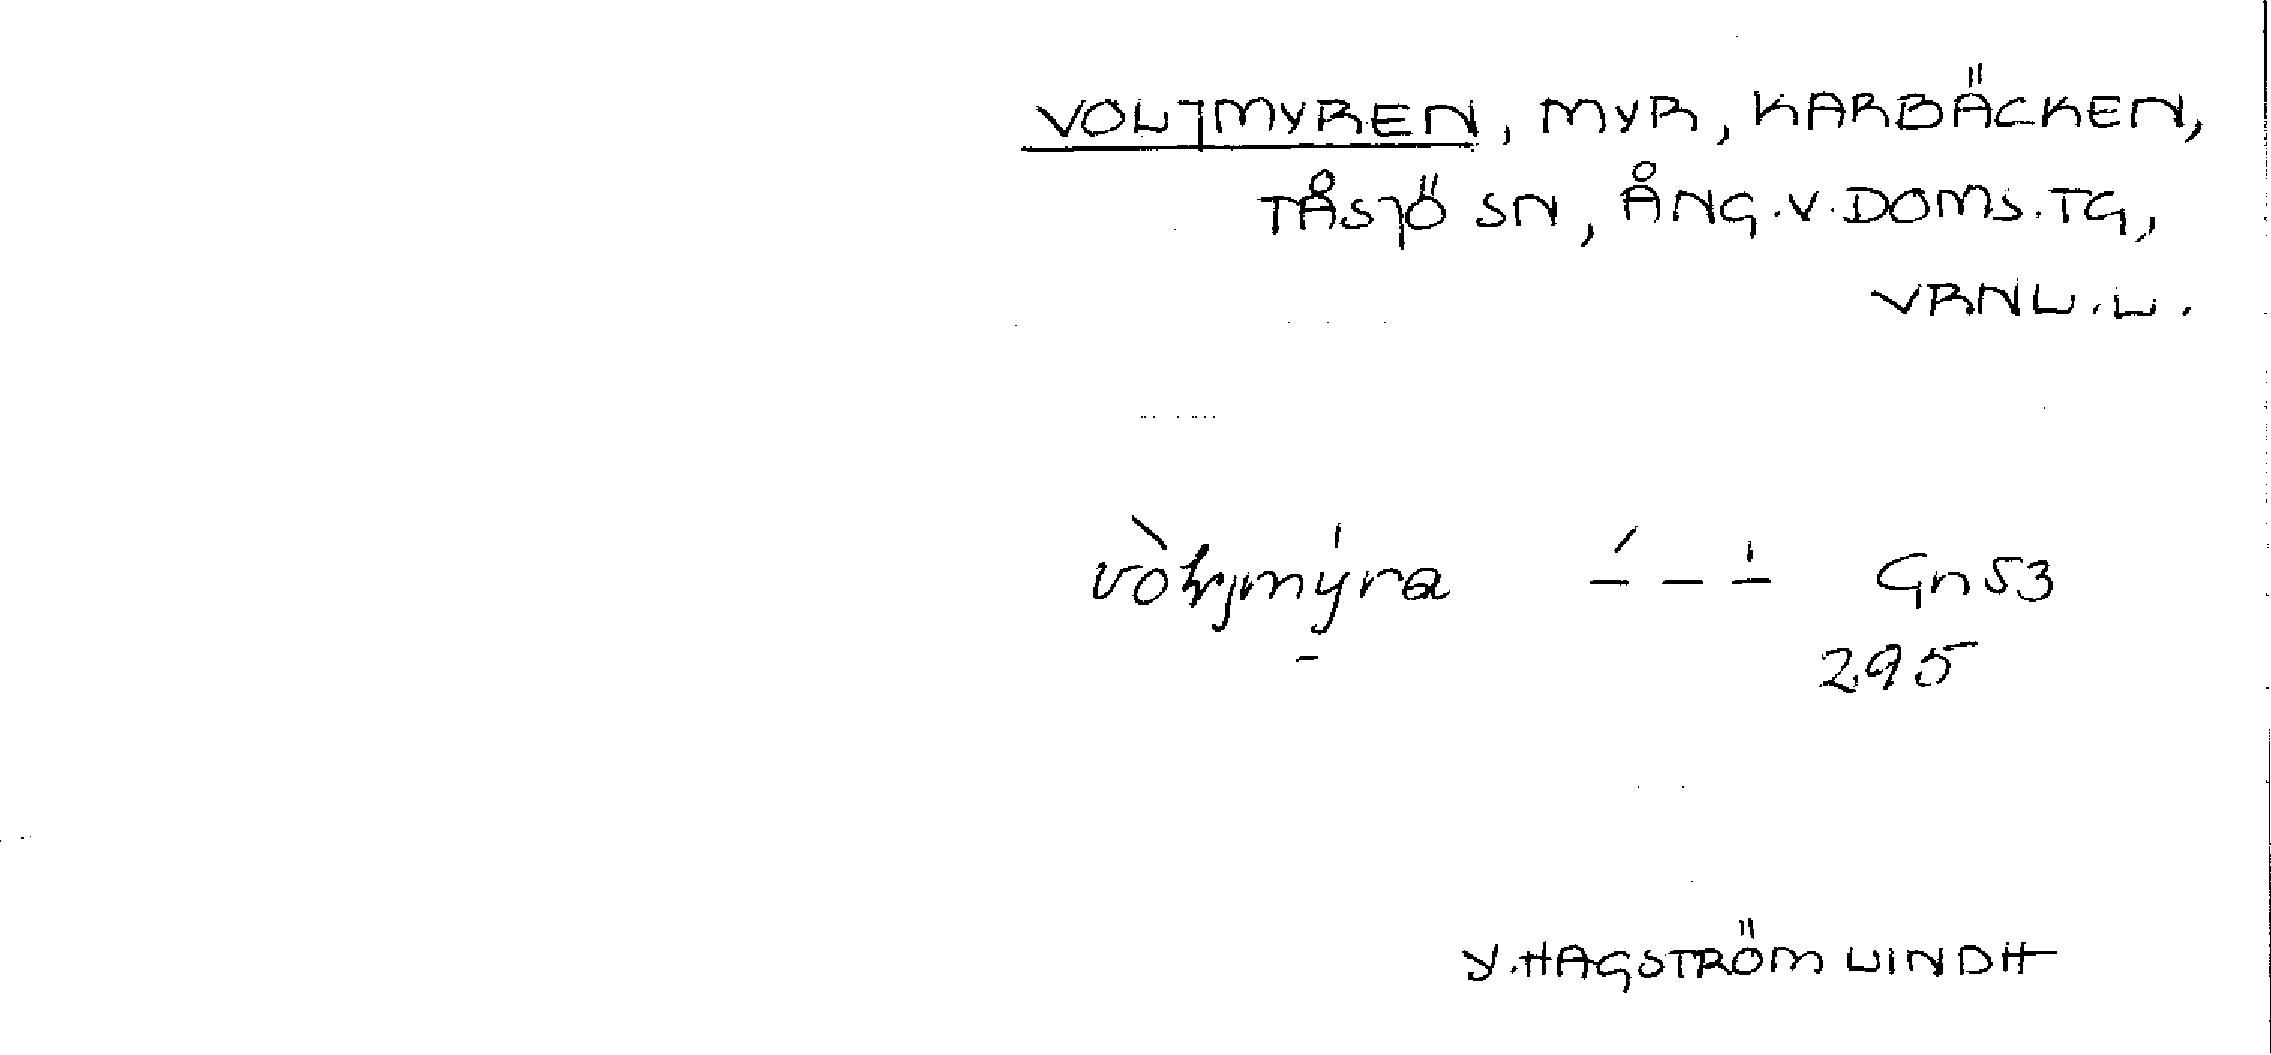 VOLJMYREN, MYR, KARBÄCKEN,
TÅSJÖ SN, ÅNG.V.DOMS.TG,
VRNL.L.
Gn 53
295
Y.HAGSTRÖM LINDH